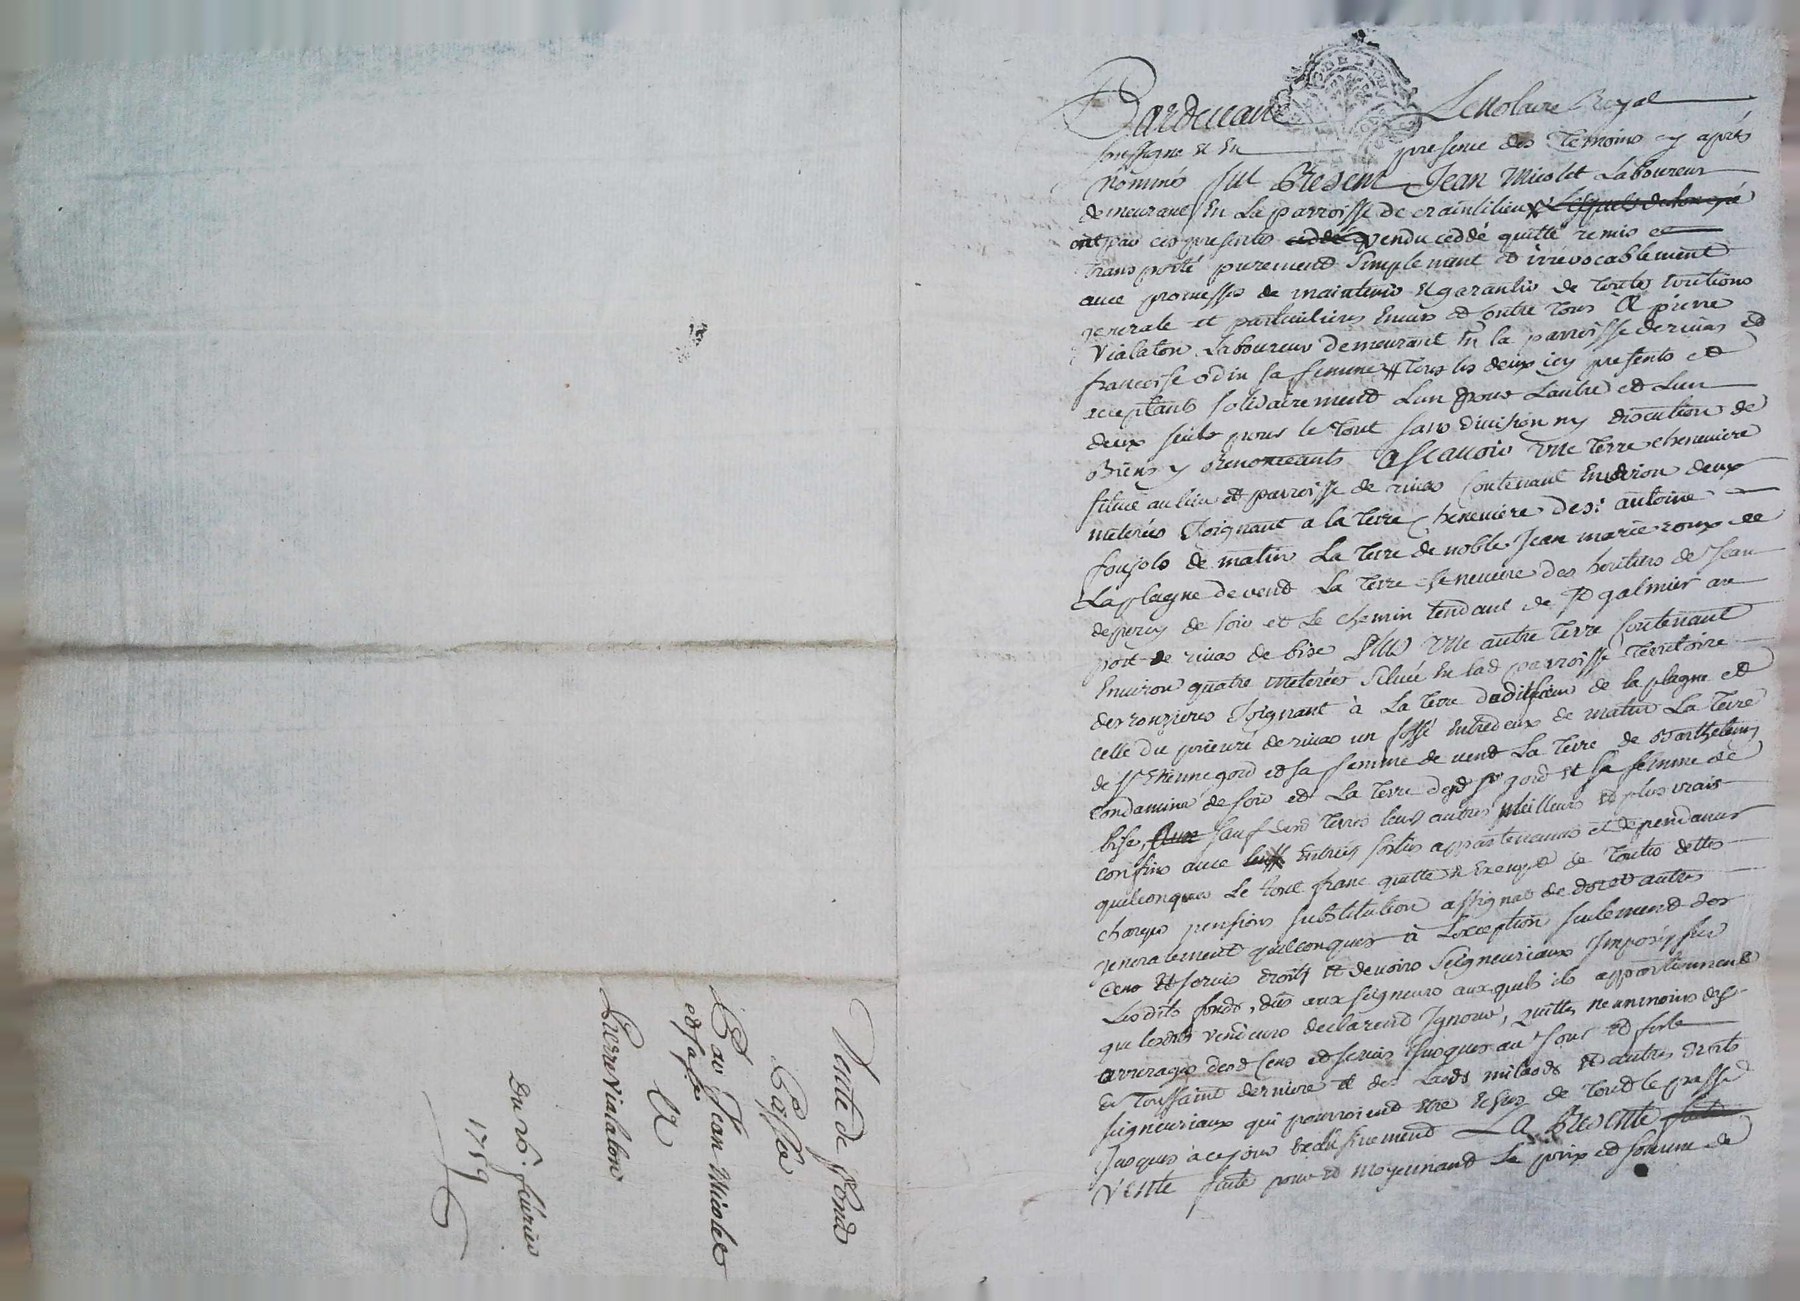 Pardevant Le Notaire Royal
soussigné et En presence des Temoins cy après
nommés fut Present Jean Micolet Laboureur
demeurant En La parroisse de craintilieux Lesquels de leur gré
ont par ces presentes cedde vendu ceddé quitté remis et
transporté purement simplement et irrevocablement
avec promesse de maintenir et garantir de toutes
generale et particulieres Envers et contre tous A pierre
Vialaton Laboureur demeurant En la parroisse de rivas et
francoise odin sa femme tous les deux icy presents et
acceptants solidairement L'un pour L'autre et L'un
deux seuls pour le tout sans division ny discution de
Biens y Renonceants Ascavoir Une Terre cheneviere
situé au lieu et parroisse de rivas contenant Environ deux
meterées Joignant a la terre cheneviere de sr antoine
foujols de matin La terre de noble Jean marie roux de
La plagne de vend La Terre cheneviere des heritiers de Jean
de soir et Le chemin tendant de St galmier au
port de rivas de bise Plus Une autre terre contenant
Environ quatre meterées située En lad parroisse Territoire
des ronzieres Joignant à La terre dudit sieur de la plagne et
celle du prieuré de rivas un fossé Entredeux de matin La Terre
de sr Etienne gord et sa femme de vend La terre de Barthelemy
condamine de soir et La terre dud sr gord et sa femme de
bise, sauf desd terres leurs autres meilleurs et plus vrais
confins avec leurs Entrées sorties appartenances et dependances
quelconques Le tout franc quitte et Exempt de toutes dettes
charges pensions substitution assignat de dot et autres
generalement quelconques à L'exception seulement des
Cens et servis droits et devoirs Seigneuriaux Imposés sur
Lesdits fonds, dus aux seigneurs auxquels ils appartiennent
que lesdits vendeurs declarent Ignorer, quittes neanmoins des
arrerages desd Cens et servis Jusques au Jour et feste
de Toussaint derniere et des Laods milaods et autres droits
seigneuriaux qui pourroient être echus de tout le passé
Jusques à ce jour exclusivement La Presente
Vente faite pour et moyennant Le prix et somme de
Vente de fond
Passée
Par Jean Micolet
et sa fe
A
Pierre Vialaton
Du 26 fevrier
1759